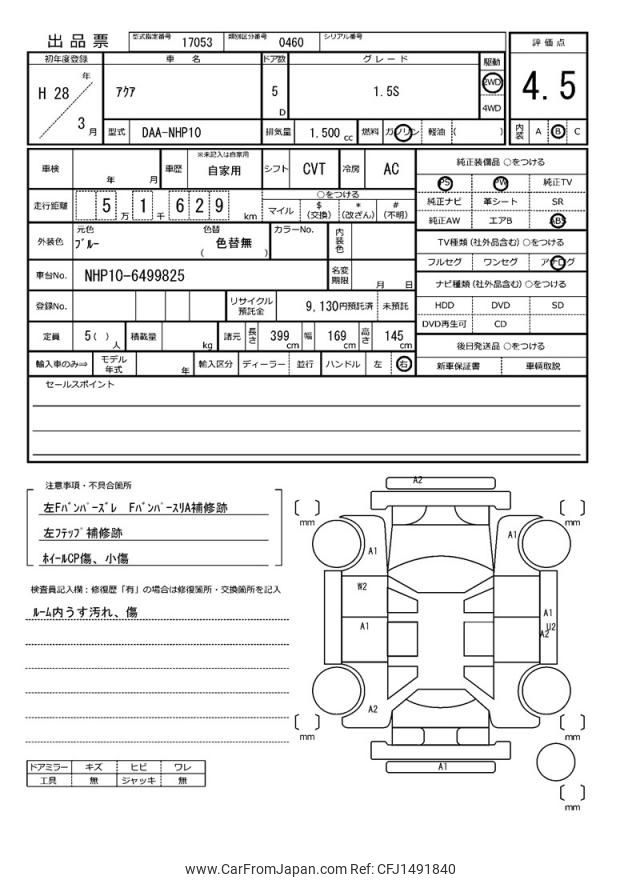 出品票 型式指定番号 17053 類別区分番号 0460 シリアル番号
評価点
4.5
内装 A B C
初年度登録 車名 ドア数 グレード 駆動
H 28 年 3 月 アクア 5 D 1.5S 2WD 4WD
型式 DAA-NHP10 排気量 1.500 cc 燃料 ガソリン 軽油 ( )
車検 年 月 車歴 ※未記入は自家用 自家用 シフト CVT 冷房 AC
走行距離 5 万 1 千 6 2 9 km ○をつける マイル $ (交換) * (改ざん) # (不明)
外装色 元色 ブルー 色替 ( 色替無 ) カラーNo. 内装色
車台No. NHP10-6499825 名変期限 月 日
登録No. リサイクル預託金 9,130円預託済 未預託
定員 5( ) 人 積載量 kg 諸元 長さ 399 cm 幅 169 cm 高さ 145 cm
輸入車のみ⇒ モデル年式 年 輸入区分 ディーラー 並行 ハンドル 左 右
純正装備品 ○をつける
PS PW 純正TV
純正ナビ 革シート SR
純正AW エアB ABS
TV種類 (社外品含む) ○をつける
フルセグ ワンセグ アナログ
ナビ種類 (社外品含む) ○をつける
HDD DVD SD
DVD再生可 CD
後日発送品 ○をつける
新車保証書 車輌取説
セールスポイント
注意事項・不具合箇所
左Fバンパーズレ FバンパースリA補修跡
左Fステップ補修跡
ホイールCP傷、小傷
検査員記入欄：修復歴「有」の場合は修復箇所・交換箇所を記入
ルーム内うす汚れ、傷
ドアミラー キズ ヒビ ワレ
工具 無 ジャッキ 無
A2
mm mm
A1 A1
W2
A1 A1
U2
A2
A2
mm mm
A1
mm
www.CarFromJapan.com Ref: CFJ1491840